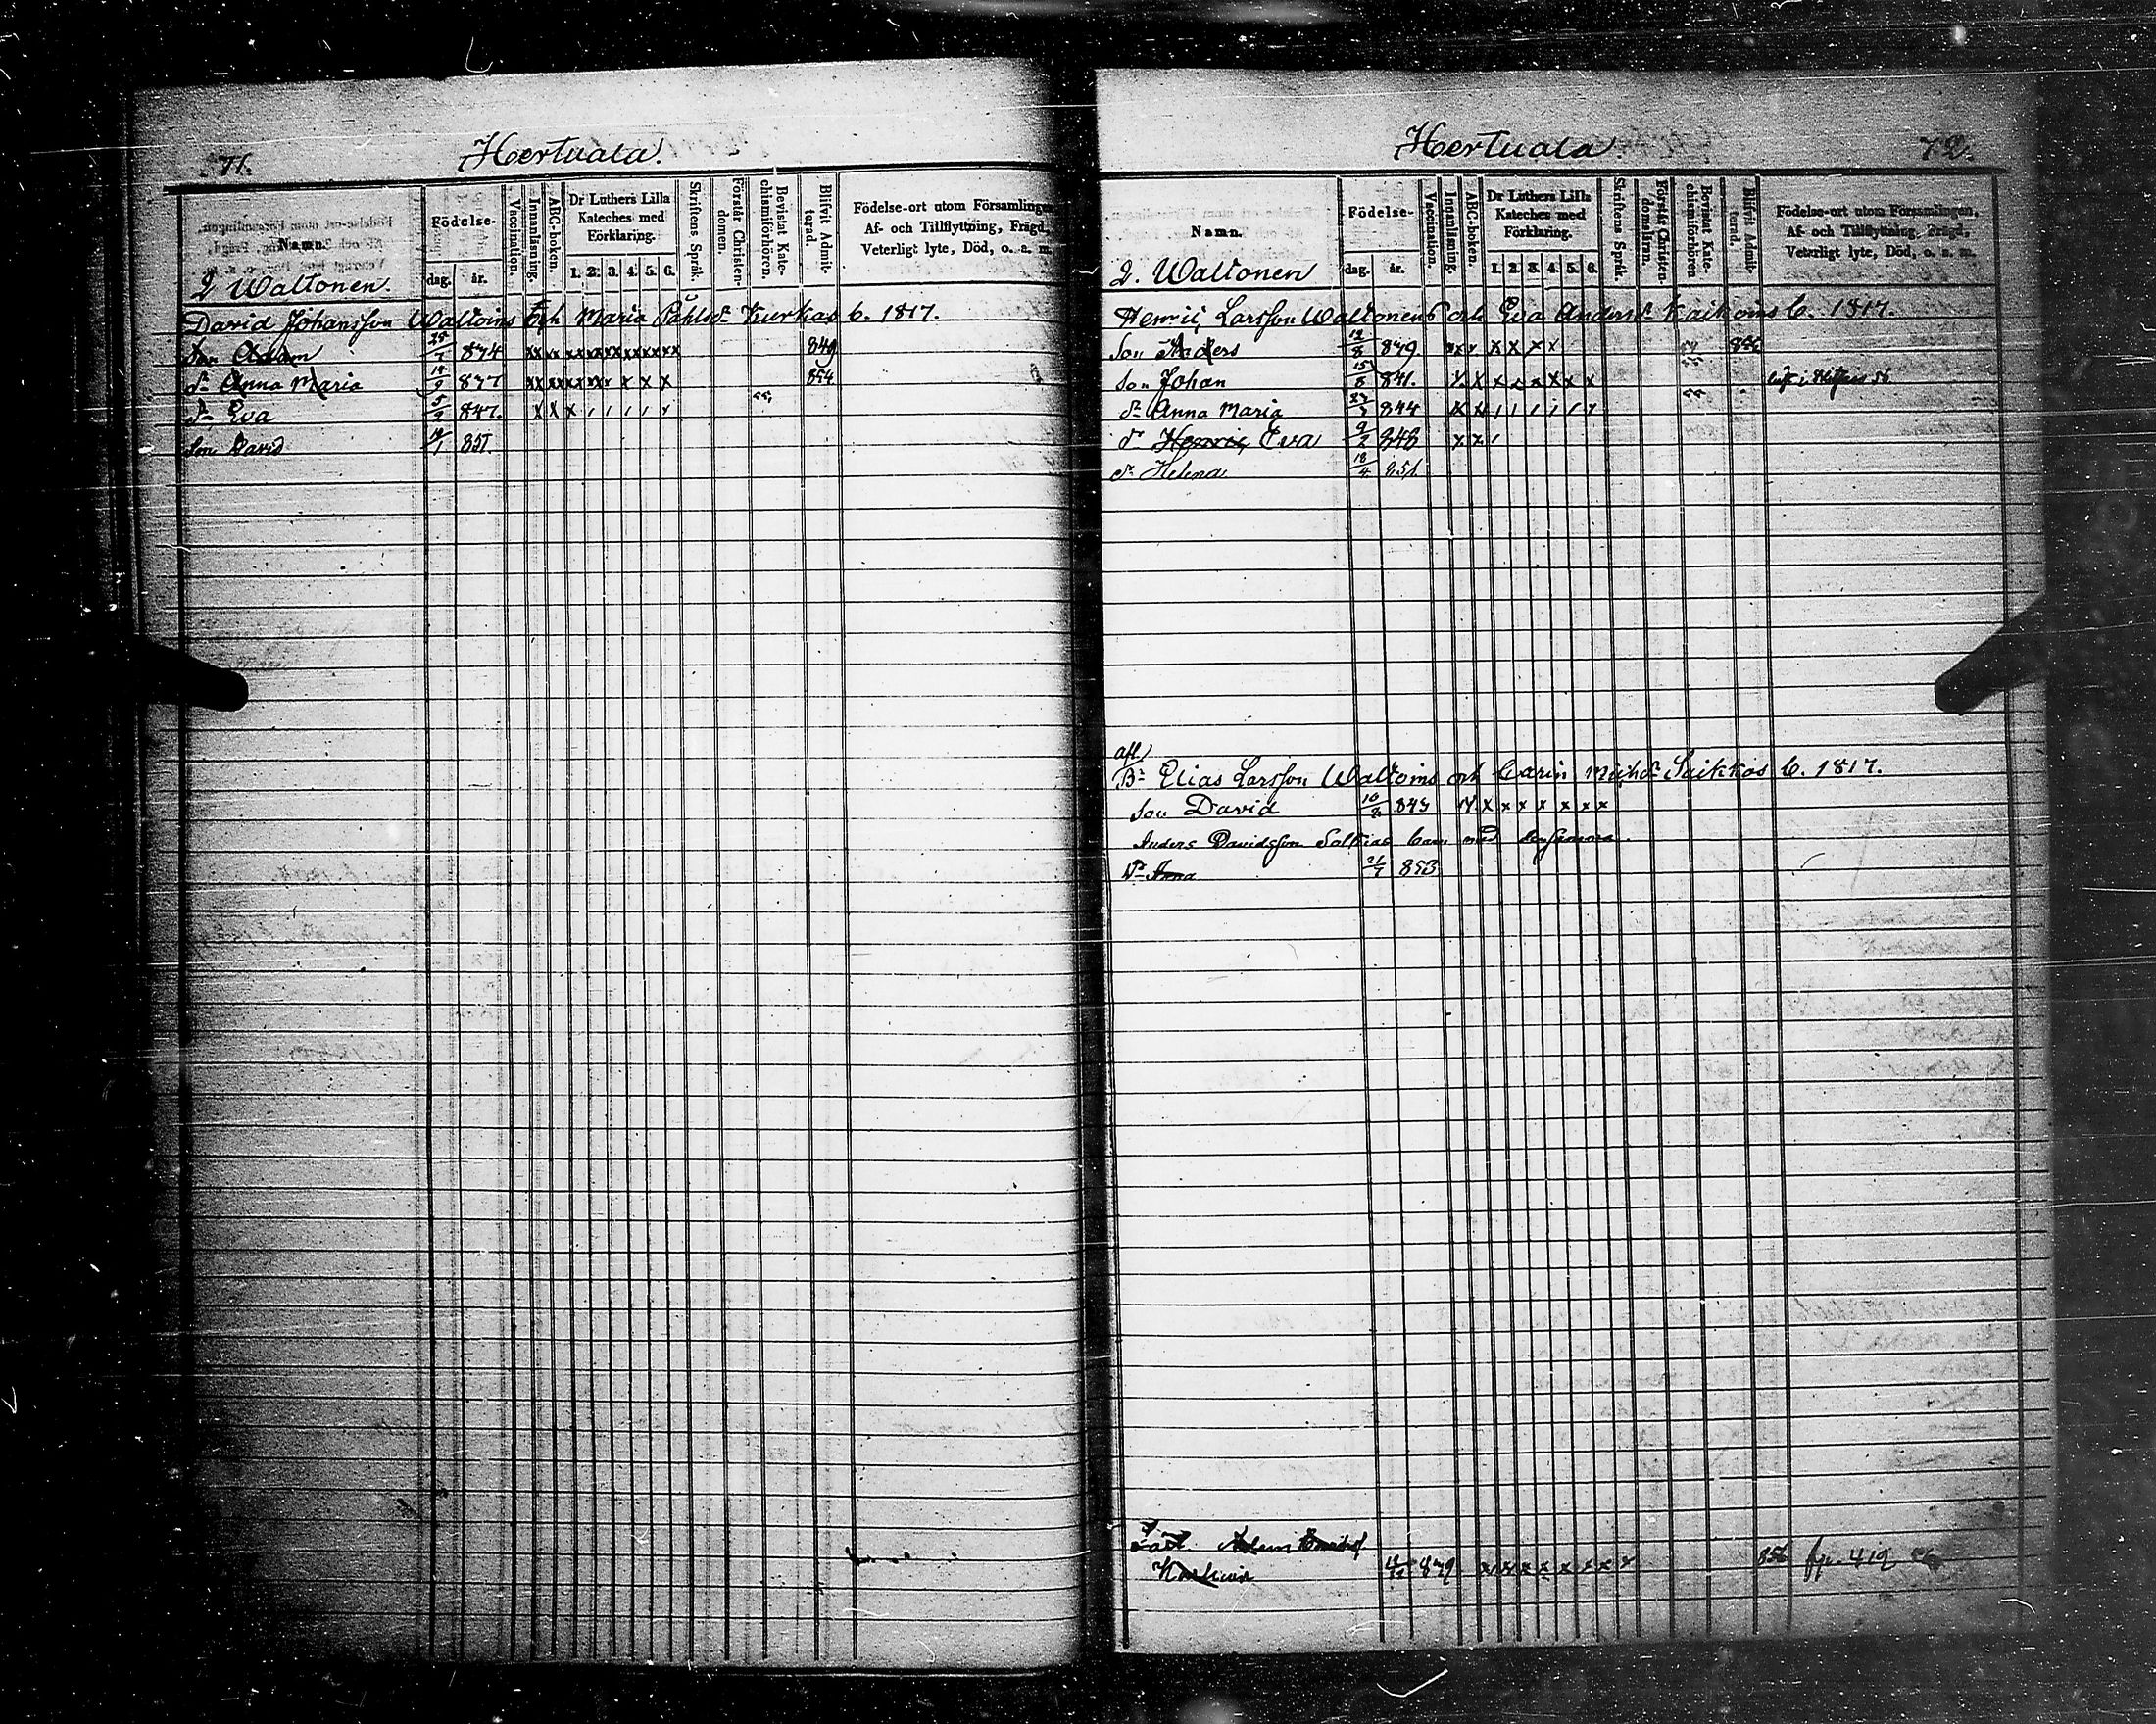 71.
Hertuala.
Namn.
Födelse-
dag. år.
Vaccination.
Innanläsning.
ABC-boken.
Dr Luthers Lilla Kateches med Förklaring.
1. 2. 3. 4. 5. 6.
Skriftens Språk.
Förstår Christendomen.
Bevistat Katechismiförhören.
Blifvit Admitterad.
Födelse-ort utom Församlingen,
Af- och Tillflyttning, Frägd,
Veterligt lyte, Död, o. s. m.
2 Waltonen.
David Johansson Waltoins och Maria Påhlsdr Kurkas b. 1817.
Son Adam 25/7 834 xx xx xx xx xx xx xx xx 849
dr Anna Maria 837 xx xx xx xx x x x x 854
dr Eva 5/2 847. x x x / / / / x
Son David 851.
Hertuala.
72.
Namn.
Födelse-
dag. år.
Vaccination.
Innanläsning.
ABC-boken.
Dr Luthers Lilla Kateches med Förklaring.
1. 2. 3. 4. 5. 6.
Skriftens Språk.
Förstår Christendomsläran.
Bevistat Katechismiförhören
Blifvit Admitterad.
Födelse-ort utom Församlingen,
Af- och Tillflyttning, Frägd,
Veterligt lyte, Död, o. s. m.
2. Waltonen
Henric Larsson Waltonens och Eva Andersdr Kaikoins b. 1817.
Son Anders 12/8 839. x x x x x x x
Son Johan 15/8 841. x x x x x x x x
dr Anna Maria 844 x x / / / / / /
dr Henric Eva 9/2 848 x x /
dr Helena 18/4 851.
afl
Br Elias Larsson Waltoins och Carin Michdr Saikkos b. 1817.
Son David 843 x x x x x x x x
Anders Davidsson barn med
Dr Anna 21/7 853
Adam
839 x x x x x x x x 856 419